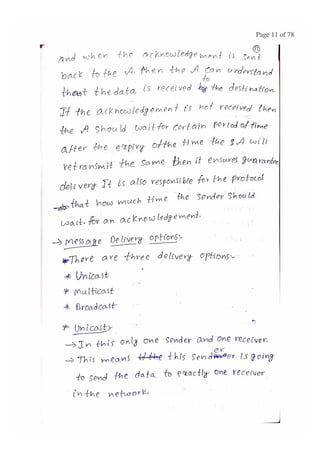 Page 11 of 78
11
and when the acknowledgement is sent
back to the A. then the A can understand
that the data is received by to the destination.
If the acknowledgement is not received then
the A should wait for certain period of time
after the expiry of the time the A will
retransmit the same. then it ensures guarantee
delivery. It is also responsible for the protocol
that how much time the sender should
wait for an acknowledgement.
→ Message Delivery options:-
There are three delivery options:-
* Unicast
* Multicast
* Broadcast
* Unicast:-
→ In this only one sender and one receiver.
→ This means this sender is going
to send the data to exactly one receiver
in the network.